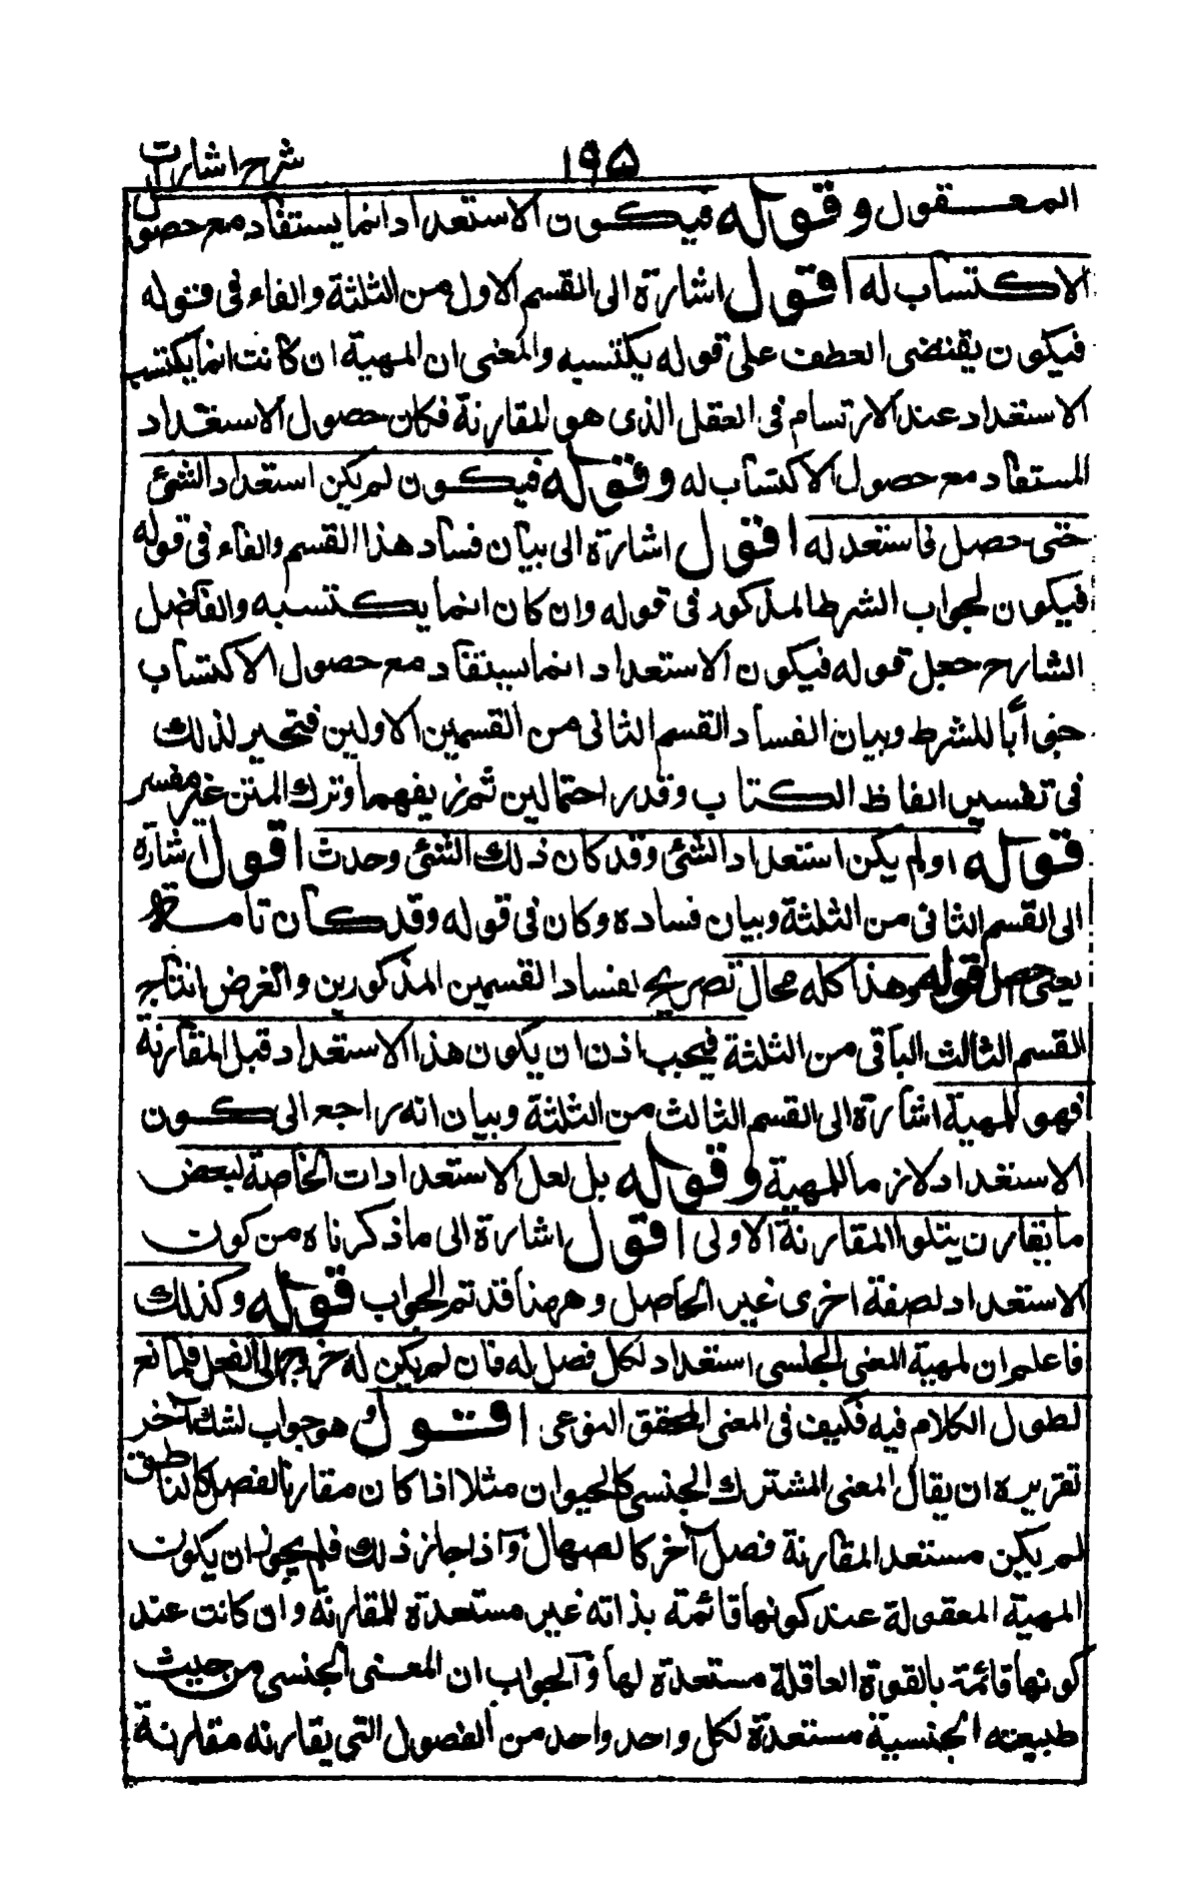 ١٩٥ شرح اشارات
المعقول وقوله فيكون الاستعداد انما يستفاد مع حصول
الاكتساب له اقول اشارة الى القسم الاول من الثلثة والفاء فى قوله
فيكون يقتضى العطف على قوله يكتسبه والمعنى ان المهية ان كانت انما يكتسب
الاستعداد عند الارتسام فى العقل الذى هو المقارنة فكان حصول الاستعداد
المستفاد مع حصول الاكتساب له وقوله فيكون لم يكن استعداد الشئ
حتى حصل فاستعد له اقول اشارة الى بيان فساد هذا القسم والفاء فى قوله
فيكون لجواب الشرط المذكور فى قوله وان كان انما يكتسبه والفاضل
الشارح جعل قوله فيكون الاستعداد انما يستفاد مع حصول الاكتساب
جوابا للشرط وبيان الفساد القسم الثانى من القسمين الاولين فتحير لذلك
فى تفسير الفاظ الكتاب وقدر احتمالين ثم زيفهما وترك المتن غير مفسر
قوله اولم يكن استعداد الشئ وقد كان ذلك الشئ وحدث اقول اشارة
الى القسم الثانى من الثلثة وبيان فساده وكان فى قوله وقد كان تامة
يعنى حصل قوله وهذا كله محال تصريح بفساد القسمين المذكورين والغرض انتاج
القسم الثالث الباقى من الثلثة فيجب اذن ان يكون هذا الاستعداد قبل المقارنة
فهو للمهية اشارة الى القسم الثالث من الثلثة وبيان انه راجع الى كون
الاستعداد لازما للمهية وقوله بل لعل الاستعدادات الخاصة لبعض
ما يقارن يتلوا المقارنة الاولى اقول اشارة الى ما ذكرناه من كون
الاستعداد لصفة اخرى غير الحاصل وههنا قد تم الجواب قوله وكذلك
فاعلم ان لمهية المعنى الجنسى استعداد لكل فصل له فان لم يكن له خروج الى الفعل فلمانع
لطول الكلام فيه فكيف فى المعنى المحقق النوعى اقول وهو جواب لشك آخر
تقريره ان يقال المعنى المشترك الجنسى كالحيوان مثلا اذا كان مقارنا لفصل كالناطق
لم يكن مستعد المقارنة فصل آخر كالصهال واذا جاز ذلك فلم يجوز ان يكون
المهية المعقولة عند كونها قائمة بذاته غير مستعدة للمقارنة وان كانت عند
كونها قائمة بالقوة العاقلة مستعدة لها والجواب ان المعنى الجنسى من حيث
طبيعته الجنسية مستعدة لكل واحد واحد من الفصول التى يقارنه مقارنة